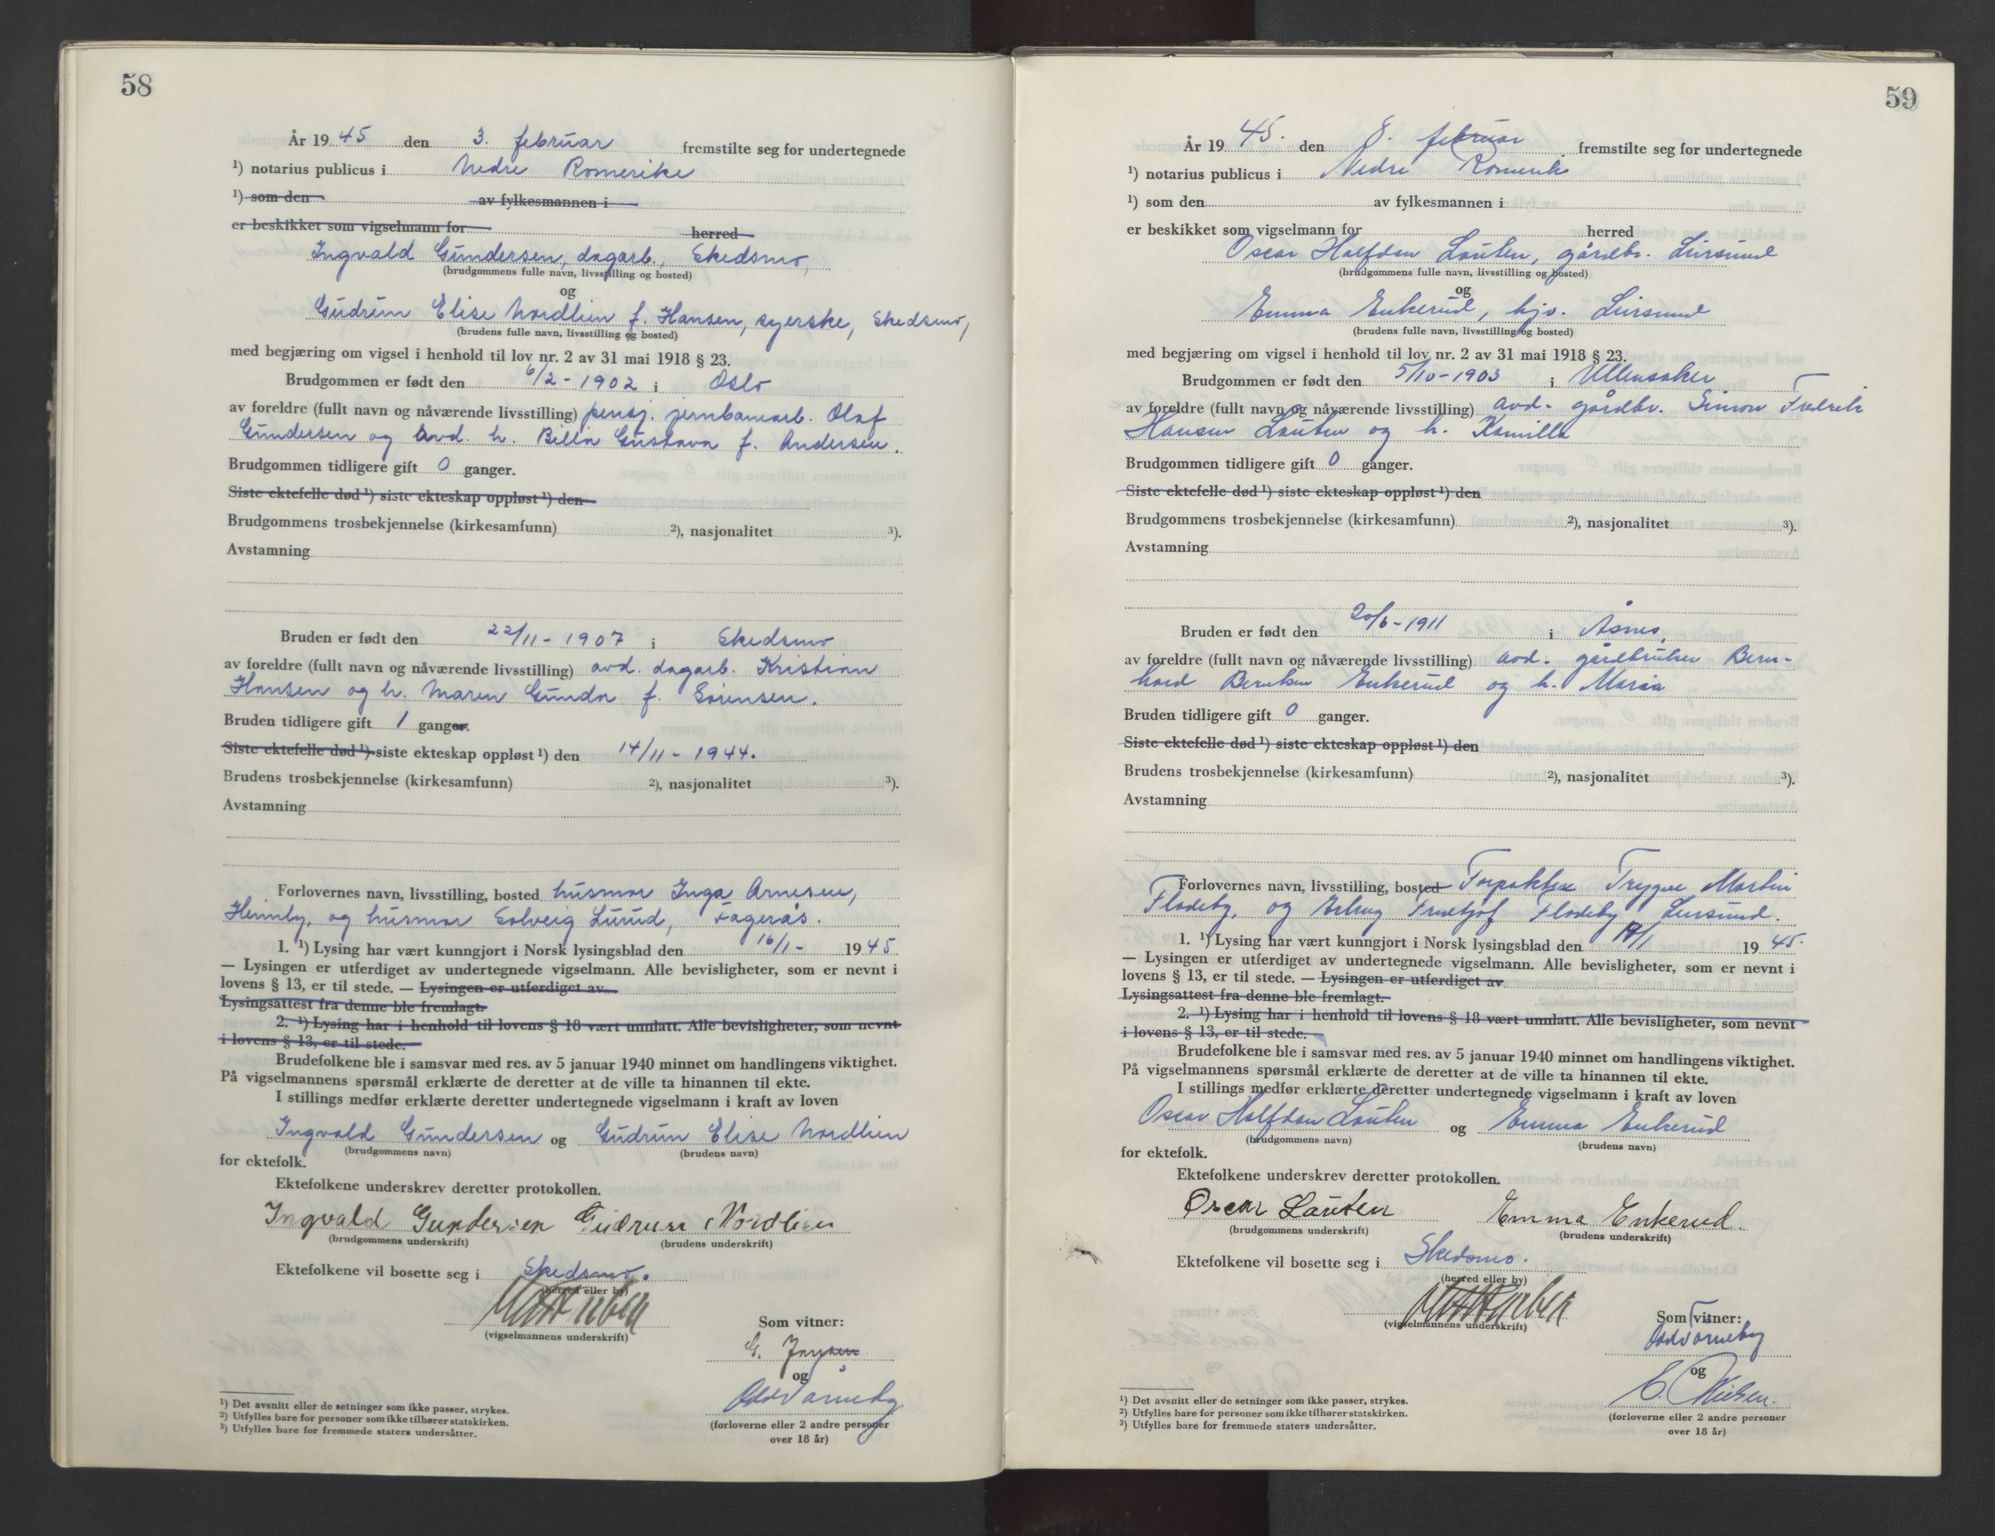 58
År 1945 den 3. februar fremstilte seg for undertegnede
¹) notarius publicus i Nedre Romerike
¹) som den av fylkesmannen i
er beskikket som vigselmann for herred
Ingvald Gundersen, dagarb., Skedsmo,
(brudgommens fulle navn, livsstilling og bosted)
og
Gudrun Elise Nordlien f. Hansen, syerske, Skedsmo,
(brudens fulle navn, livsstilling og bosted)
med begjæring om vigsel i henhold til lov nr. 2 av 31 mai 1918 § 23.
Brudgommen er født den 6/2 - 1902 i Oslo
av foreldre (fullt navn og nåværende livsstilling) pensj. jernbanearb. Olaf
Gundersen og avd. h. Gustava f. Andersen.
Brudgommen tidligere gift 0 ganger.
Siste ektefelle død ¹) siste ekteskap oppløst ¹) den
Brudgommens trosbekjennelse (kirkesamfunn) ²), nasjonalitet ³).
Avstamning
Bruden er født den 22/11 - 1907 i Skedsmo
av foreldre (fullt navn og nåværende livsstilling) avd. dagarb. Kristian
Hansen og h. Maren Gunda f. Sørensen.
Bruden tidligere gift 1 ganger.
Siste ektefelle død ¹) siste ekteskap oppløst ¹) den 14/11 - 1944.
Brudens trosbekjennelse (kirkesamfunn) ²), nasjonalitet ³).
Avstamning
Forlovernes navn, livsstilling, bosted husmor Inga Arnesen,
Heimly, og husmor Solveig Luud, Fagerås.
1. ¹) Lysing har vært kunngjort i Norsk lysingsblad den 16/1 - 1945
— Lysingen er utferdiget av undertegnede vigselmann. Alle bevisligheter, som er nevnt i
lovens § 13, er til stede. — Lysingen er utferdiget av
Lysingsattest fra denne ble fremlagt.
2. ¹) Lysing har i henhold til lovens § 18 vært unnlatt. Alle bevisligheter, som nevnt
i lovens § 13, er til stede.
Brudefolkene ble i samsvar med res. av 5 januar 1940 minnet om handlingens viktighet.
På vigselmannens spørsmål erklærte de deretter at de ville ta hinannen til ekte.
I stillings medfør erklærte deretter undertegnede vigselmann i kraft av loven
Ingvald Gundersen og Gudrun Elise Nordlien
(brudgommens navn) (brudens navn)
for ektefolk.
Ektefolkene underskrev deretter protokollen.
Ingvald Gundersen Gudrun Nordlien
(brudgommens underskrift) (brudens underskrift)
Ektefolkene vil bosette seg i Skedsmo.
(herred eller by)
(vigselmannens underskrift)
Som vitner:
G.
og
Odd Vårneby
(forloverne eller 2 andre personer
over 18 år)
¹) Det avsnitt eller de setninger som ikke passer, strykes.
²) Utfylles bare for personer som ikke tilhører statskirken.
³) Utfylles bare for fremmede staters undersåtter.
59
År 1945. den 8. februar fremstilte seg for undertegnede
¹) notarius publicus i Nedre Romerike
¹) som den av fylkesmannen i
er beskikket som vigselmann for herred
Oscar Halfdan Lauten, gårdbr. Leirsund
(brudgommens fulle navn, livsstilling og bosted)
og
Emma Enkerud, hjv. Leirsund
(brudens fulle navn, livsstilling og bosted)
med begjæring om vigsel i henhold til lov nr. 2 av 31 mai 1918 § 23.
Brudgommen er født den 5/10 - 1903 i Ullensaker
av foreldre (fullt navn og nåværende livsstilling) avd. gårdbr. Simon Fredrik
Hansen Lauten og h. Kamilla
Brudgommen tidligere gift 0 ganger.
Siste ektefelle død ¹) siste ekteskap oppløst ¹) den
Brudgommens trosbekjennelse (kirkesamfunn) ²), nasjonalitet ³).
Avstamning
Bruden er født den 20/6 - 1911 i Åsnes,
av foreldre (fullt navn og nåværende livsstilling) avd. gårdbruker Bern-
hard Enkerud og h. Maria
Bruden tidligere gift 0 ganger.
Siste ektefelle død ¹) siste ekteskap oppløst ¹) den
Brudens trosbekjennelse (kirkesamfunn) ²), nasjonalitet ³).
Avstamning
Forlovernes navn, livsstilling, bosted Forpakter Trygve Martin
Flodeby, og Fridtjof Flodeby Leirsund.
1. ¹) Lysing har vært kunngjort i Norsk lysingsblad den 1945.
— Lysingen er utferdiget av undertegnede vigselmann. Alle bevisligheter, som er nevnt i
lovens § 13, er til stede. — Lysingen er utferdiget av
Lysingsattest fra denne ble fremlagt.
2. ¹) Lysing har i henhold til lovens § 18 vært unnlatt. Alle bevisligheter, som nevnt
i lovens § 13, er til stede.
Brudefolkene ble i samsvar med res. av 5 januar 1940 minnet om handlingens viktighet.
På vigselmannens spørsmål erklærte de deretter at de ville ta hinannen til ekte.
I stillings medfør erklærte deretter undertegnede vigselmann i kraft av loven
Oscar Halfdan Lauten og Emma Enkerud
(brudgommens navn) (brudens navn)
for ektefolk.
Ektefolkene underskrev deretter protokollen.
Oscar Lauten Emma Enkerud.
(brudgommens underskrift) (brudens underskrift)
Ektefolkene vil bosette seg i Skedsmo.
(herred eller by)
(vigselmannens underskrift)
Som vitner:
Odd Vårneby
og
E. Nielsen.
(forloverne eller 2 andre personer
over 18 år)
¹) Det avsnitt eller de setninger som ikke passer, strykes.
²) Utfylles bare for personer som ikke tilhører statskirken.
³) Utfylles bare for fremmede staters undersåtter.